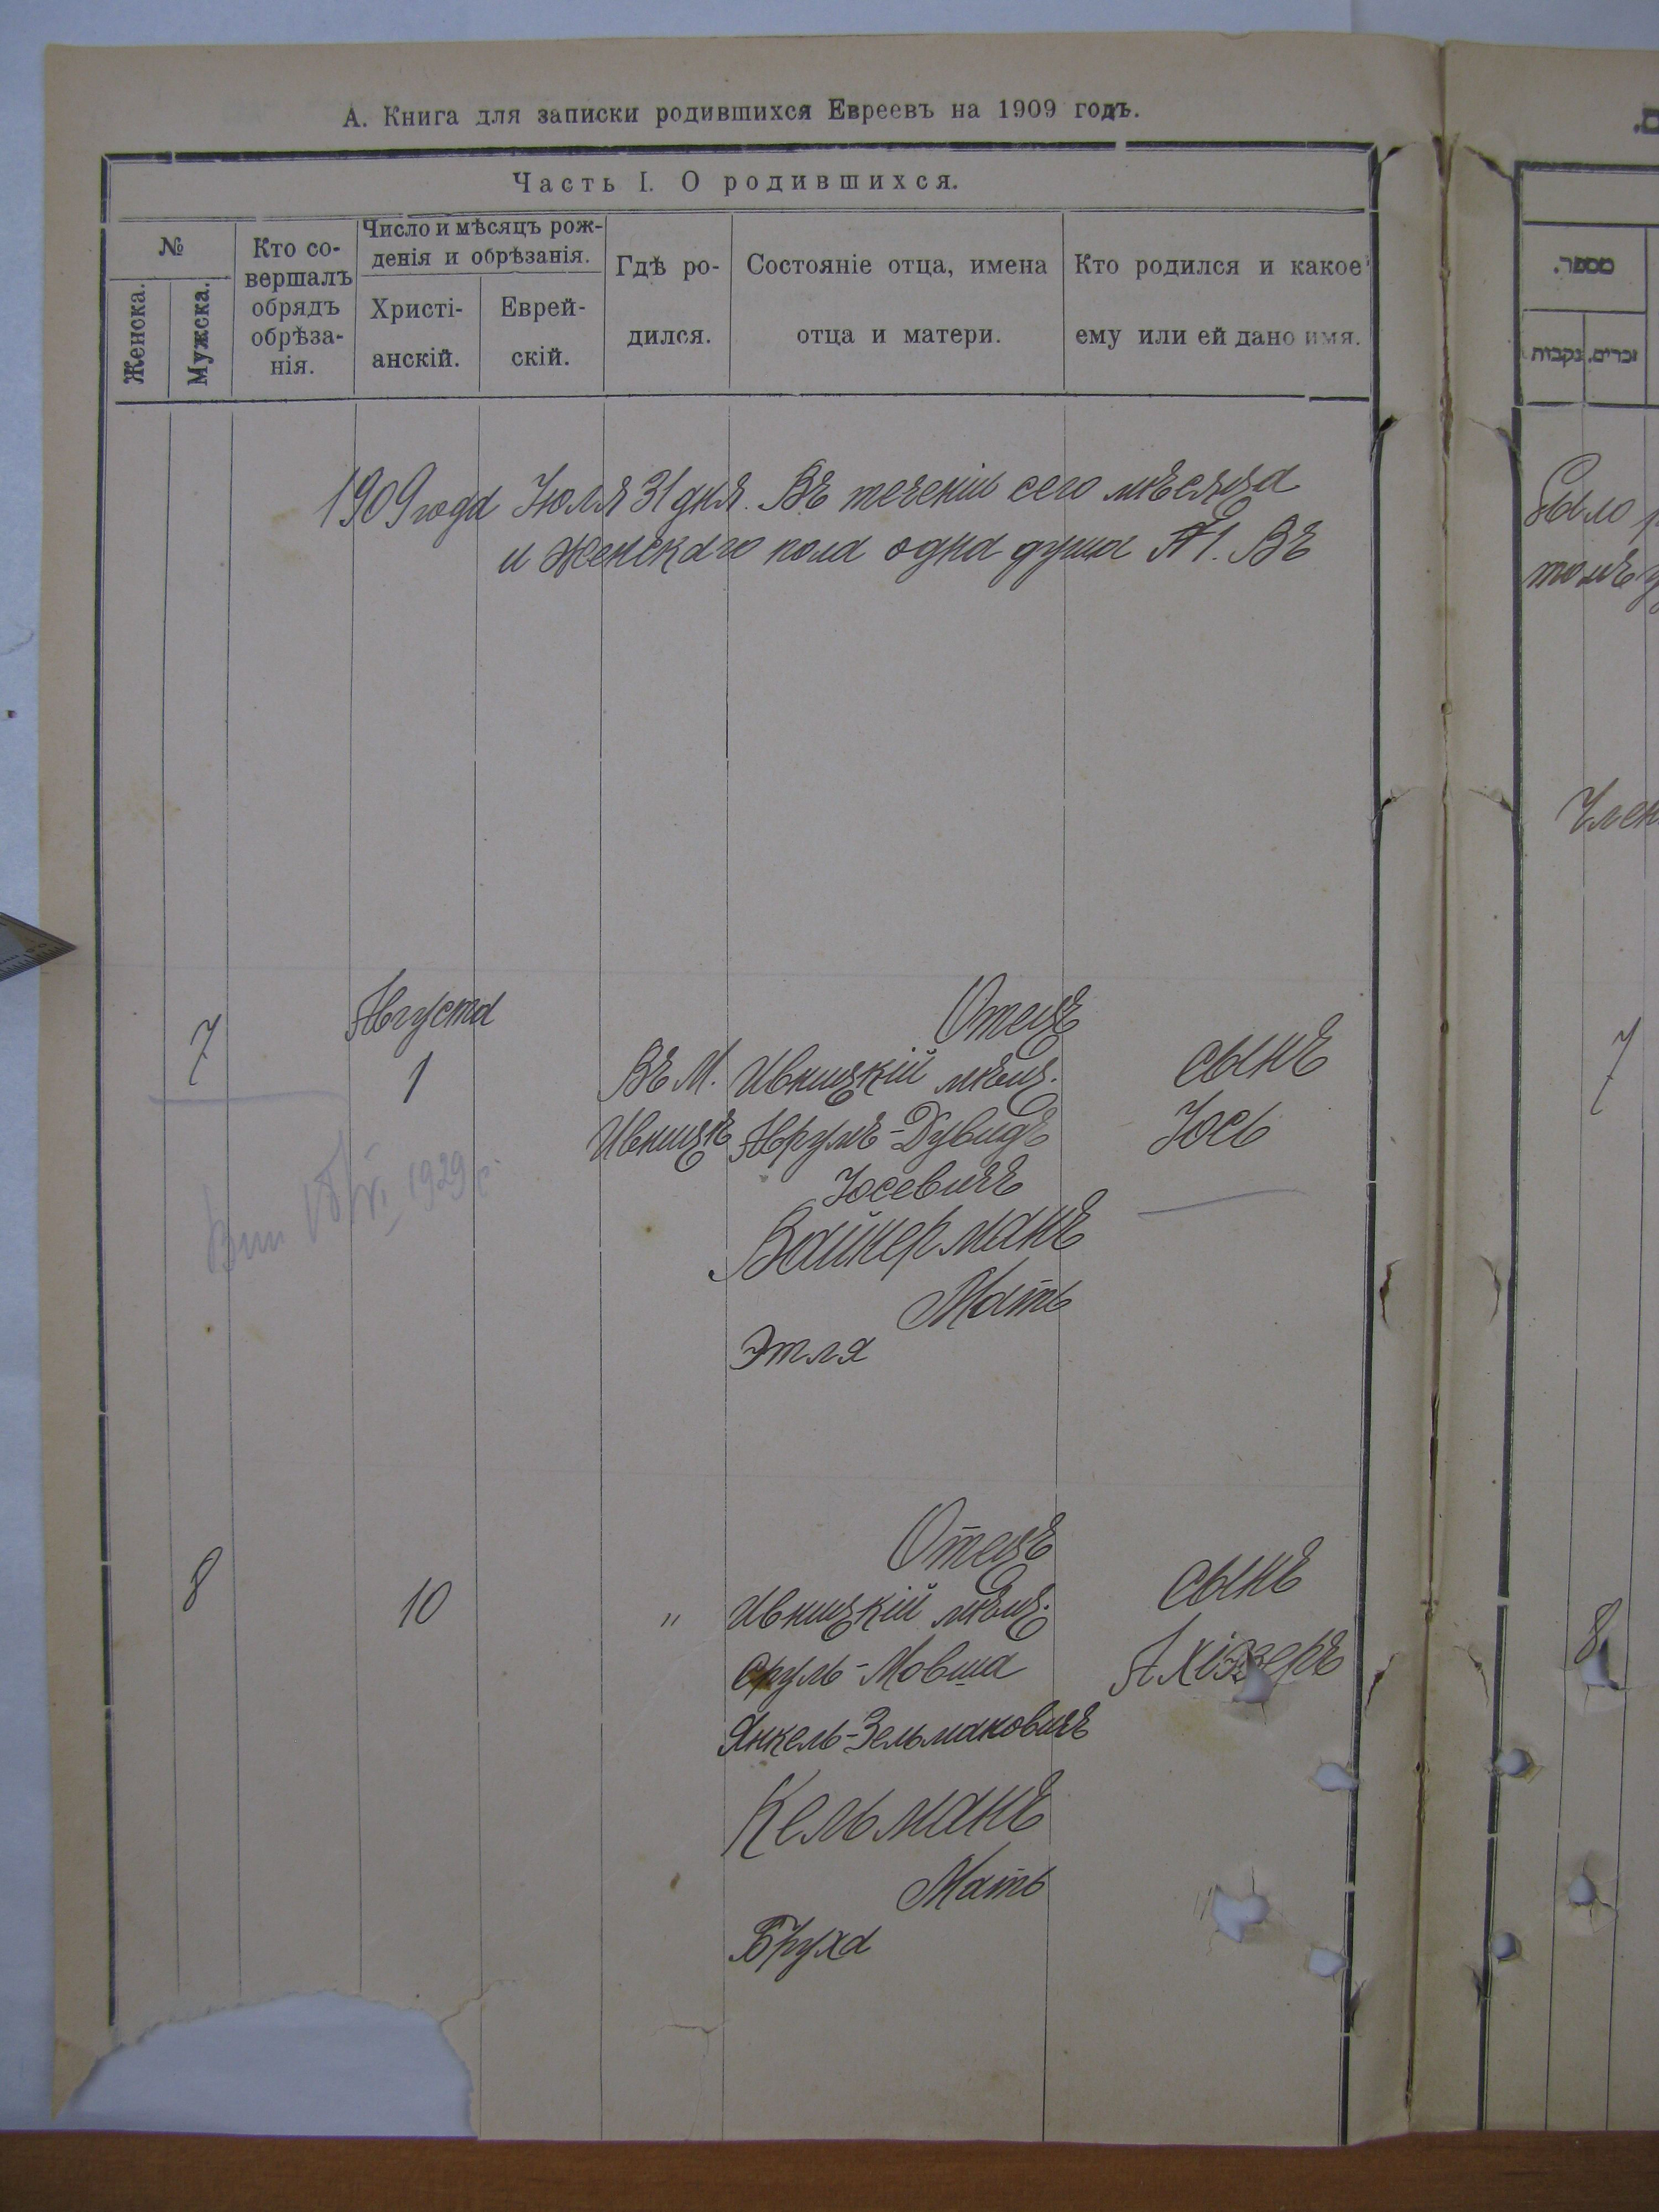 А. Книга для записки родившихся Евреевъ на 1909 годъ.
Часть I. О родившихся.
№
Женска.
Мужска.
Кто со-
вершалъ
обрядъ
обрѣза-
нія.
Число и мѣсяцъ рож-
денія и обрѣзанія.
Христі-
анскій.
Еврей-
скій.
Гдѣ ро-
дился.
Состояніе отца, имена
отца и матери.
Кто родился и какое
ему или ей дано имя.
1909 года Іюля 31 дня. Въ теченіи сего мѣсяца
и женскаго пола одна душа №1. Въ
7
Августа
1
Въ М.
Ивницѣ
Отецъ
Ивницкій мѣщ.
Аврумъ-Дувидъ
Іосевичъ
Вайнерманъ
Мать
Этля
сынъ
Іось
1929 г.
8
10
"
Отецъ
Ивницкій мѣщ.
Сруль-Мовша
Янкель-Зельмановичъ
Кельманъ
Мать
Бруха
сынъ
Ахіэзеръ
מספר.
זכרים.
נקבות
было
томъ
Член
7
8